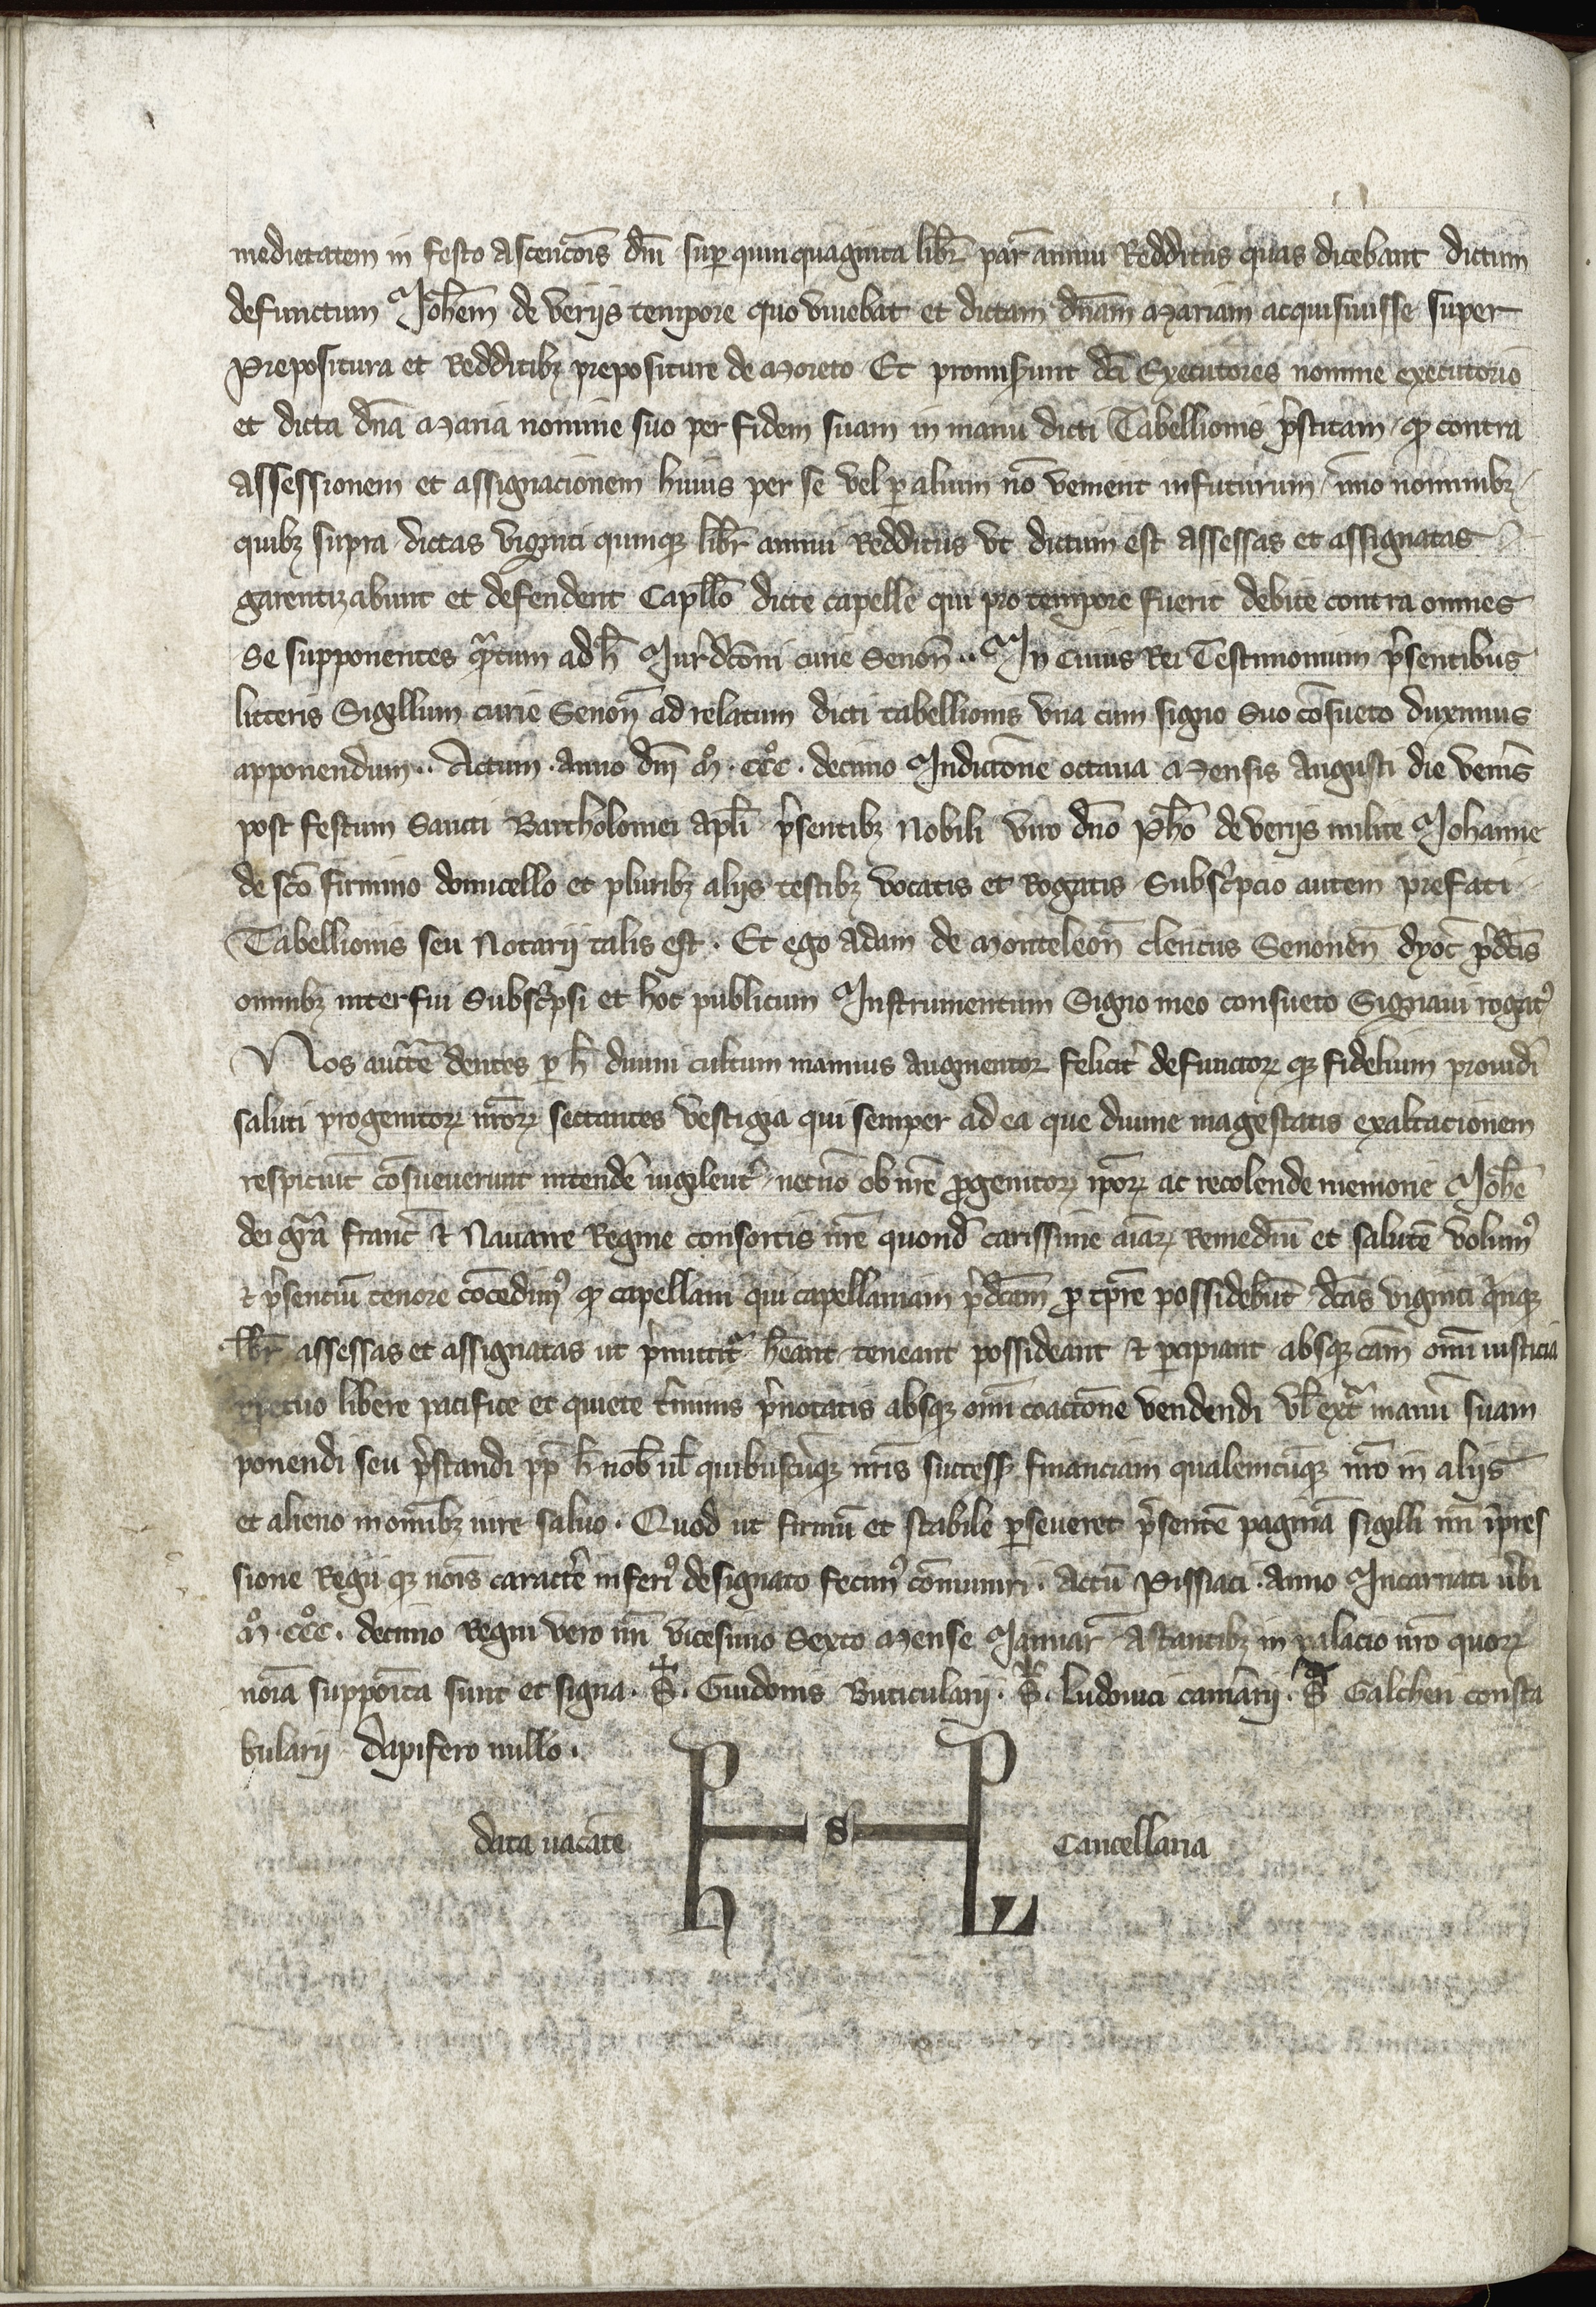 medietatem in festo Ascenc̄ois dn̄i sup̱ quinquaginta libr̄ par̄ annui Redditus quas dicebant dictum
defunctum Joh̄em de verijs tempore quo viuebat et dictam dn̄am Mariam acquisiuisse super
Prepositura et Redditibꝫ prepositure de Moreto Et promiserunt dc̄i Executores nomine executorio
et dicta dn̄a Maria nomine suo per fidem suam in manu dicti Tabellionis p̄stitam ꝙ contra
Assessionem et assignacionem huius per se vel ꝑ alium nō venient infuturum ĩmo nominibꝫ
quibꝫ supra dictas viginti quinqꝫ libr̄ annui Redditus vt dictum est assessas et assignatas
garentizabunt et defendent Capll̄o dicte capelle qui pro tempore fuerit debite contra omnes
Se supponentes q̃ntum ad h̄ Jur̄dc̄oni curie Senoñ .. In Cuius Rei Testimonium p̄sentibus
litteris Sigillum curie Senoñ ad relatum dicti tabellionis vna cum signo Suo cōsueto duximus
apponendum .. Actum . anno dn̄i mº . cccº . decimo Indictōne octaua Mensis Augusti die ven̄is
post festum Sancti Bartholomei Apl̄i p̄sentibꝫ Nobili viro dn̄o Ph̄o de verijs milite Johanne
de sc̄o firmino domicello et pluribꝫ alijs testibꝫ vocatis et Rogatis Subsc̄pcio autem prefati
Tabellionis seu Notarij talis est . Et ego adam de Monteleoñ clericus Senoneñ dyoc̄ p̄dc̄is
omnibꝫ interfui Subsc̄psi et hoc publicum Instrumentum Signo meo consueto Signaui rogatꝰ
Nos auct̄e dentes ꝑ h̄ diuini cultum mainus augmentoꝝ felicit̄ defunctoꝝ qꝫ fidelium prouid̄i
saluti progenitoꝝ nr̄oꝝ sectantes vestigia qui semper ad ea que diuine magestatis exaltacionem
respiciunt cōsueuerunt intend̄e uigilent̄ necnō ob nr̄e ꝓgenitoꝝ ip̄oꝝ ac recolende memorie Joh̄e
dei gr̄a franc̄ ⁊ Nauarre Regine consortis nr̄e quond̄ carissime aiāꝝ Remediū et salutē volumꝰ
⁊ p̄sentiū tenore cōcedimꝰ ꝙ capellani qui capellaniam p̄dc̄am ꝓ tp̄re possidebūt dc̄as viginti q̄nqꝫ
libr̄ assessas et assignatas ut p̄mittit̄ hēant teneant possideant ⁊ ꝑcipiant absqꝫ tam̄ om̄i iusticia
ꝑpetuo libere pacifice et quiete t̄minis p̄notatis absqꝫ om̄i coactōne vendendi vl̄ ext̃ manū suam
ponendi seu p̄standi pp̄ h̄ nob̄ ul̄ quibuscūqꝫ nr̄is success̄ financiam qualemcūqꝫ nr̄o in alijs
et alieno in omībꝫ iure saluo . Quod ut firmū et stabile ꝑseueret p̄sentē paginā sigilli nr̄i īpres
sione Regii qꝫ nois caract̄e inferꝰ designato fecimꝰ cōmuniri . Actū Pissiaci . Anno Incarnati v̄bi
mº . cccº . decimo Regni vero nr̄i vicesimo Sexto Mense Januar̄ Astantibꝫ in palacio nr̄o quoꝝ
noia suppoīta sunt et signa . S̄ . Guidonis Buticularij . S̄ . Ludouici cam̄arij . S̄ Galcheri consta
bularij dapifero nullo .
data uacāte Ph s PL Cancellaria